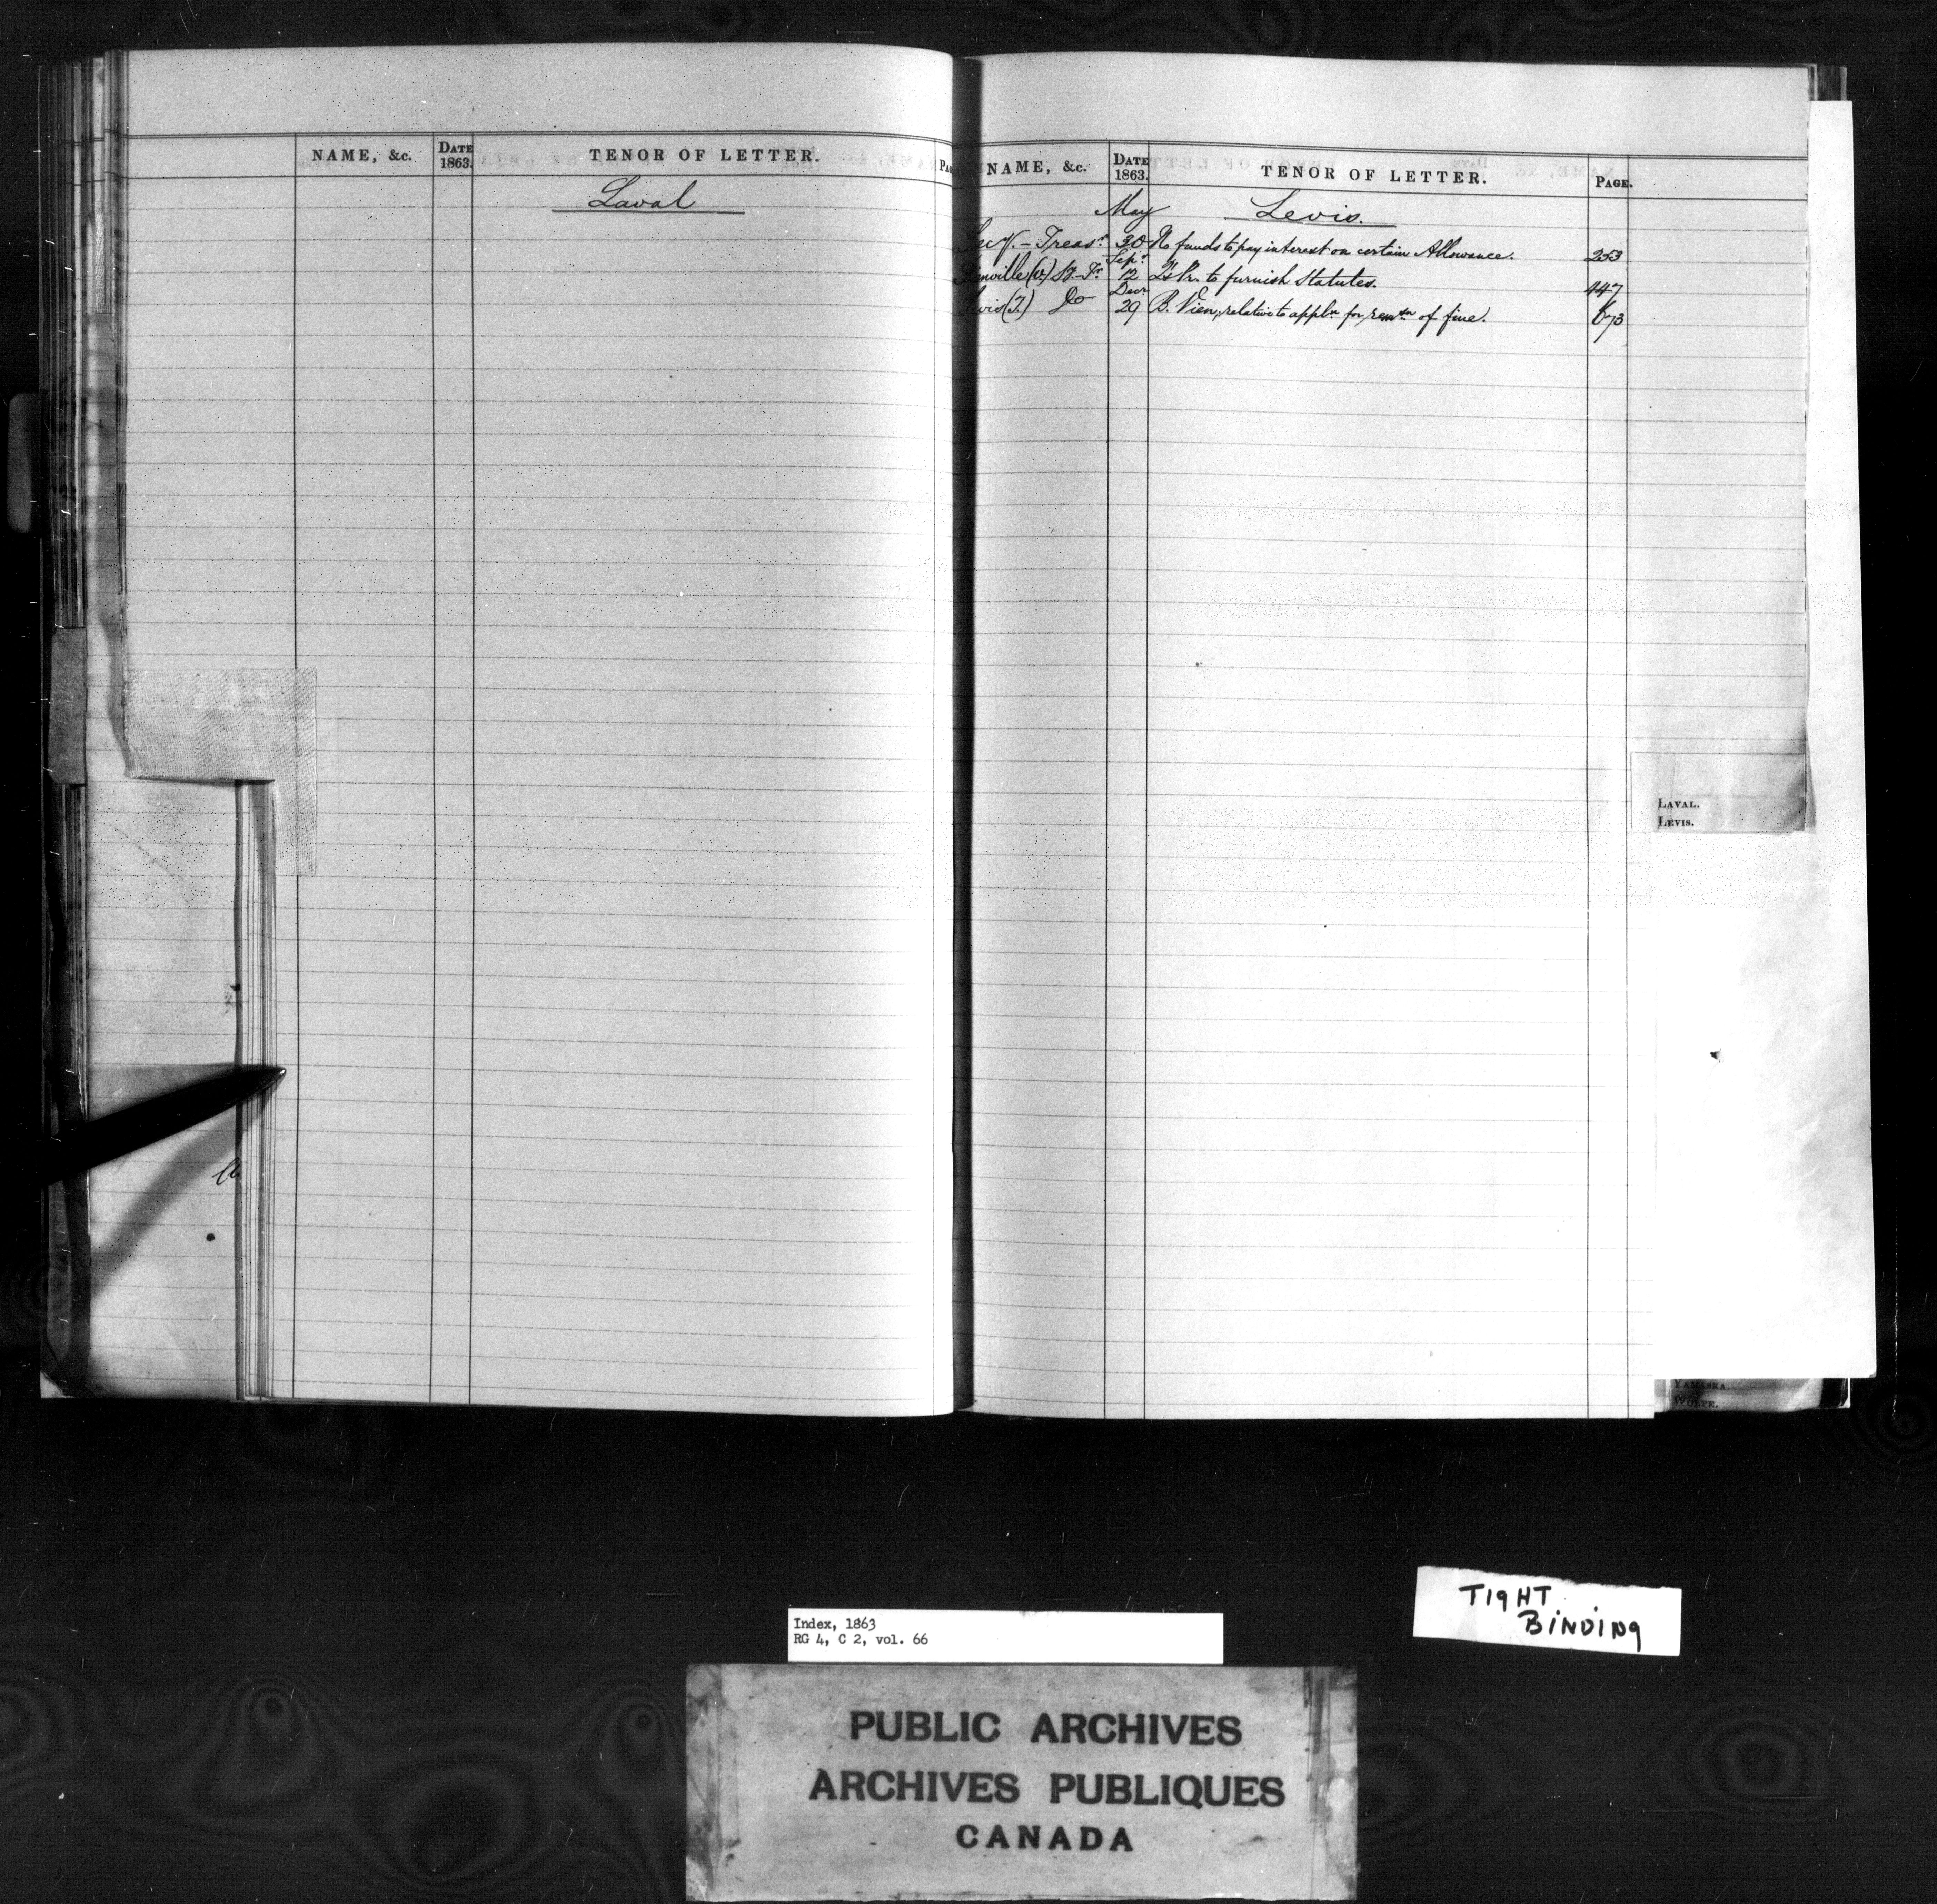 NAME, &c. DATE 1863. TENOR OF LETTER.
Laval
NAME, &c. DATE 1863. TENOR OF LETTER. PAGE.
May Levis.
Secy.-Treasr. 30 No funds to pay interest on certain Allowance. 253
Sepr.
12 Qs Pr. to furnish Statutes. 447
Decr.
Levis (T.) Do 29 B. Vien, relative to appln for remsn of fine. 673
LAVAL.
LEVIS.
YAMASKA.
WOLFE.
Index, 1863
RG 4, C 2, vol. 66
TIGHT
BINDING
PUBLIC ARCHIVES
ARCHIVES PUBLIQUES
CANADA